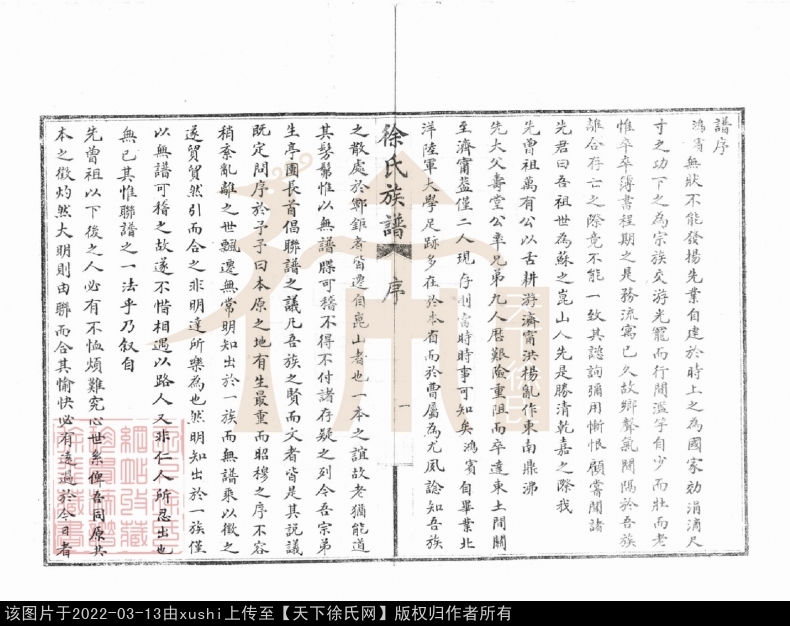 譜序
鴻賓無狀不能發揚先業自建於時上之為國家効涓滴尺
寸之功下之為宗族交游光寵而行間濫竽自少而壯而老
惟卒卒簿書程期之是務流寓已久故鄉聲氣閡隔於吾族
離合存亡之際竟不能一致其諮詢彌用慚恨顧嘗聞諸
先君曰吾祖世為蘇之崑山人先是勝清乾嘉之際我
先曾祖萬有公以舌耕游濟甯洪楊亂作東南鼎沸
先大父壽堂公率兄弟九人歷艱險重阻而卒達東土間關
至濟甯葢僅二人現存則當時時事可知矣鴻賓自畢業北
洋陸軍大學足跡多在於本省而於曹屬為尤夙諗知吾族
徐氏族譜
序
一
之散處於鄆鉅者皆遷自崑山者也一本之誼故老猶能道
其髣髴惟以無譜牒可稽不得不付諸存疑之列今吾宗弟
生亭團長首倡聯譜之議凡吾族之賢而文者皆是其説議
既定問序於予予曰本原之地有生最重而昭穆之序不容
稍紊亂離之世飄遷無常明知出於一族而無譜乘以徵之
遂貿貿然引而合之非明達所樂為也然明知出於一族僅
以無譜可稽之故遂不惜相遇以路人又非仁人所忍出也
無已其惟聯譜之一法乎乃叙自
先曾祖以下後之人必有不恤煩難究心世系俾吾同原共
本之徵灼然大明則由聯而合其愉快必有遠過於今日者
该图片于2022-03-13由xushi上传至【天下徐氏网】版权归作者所有